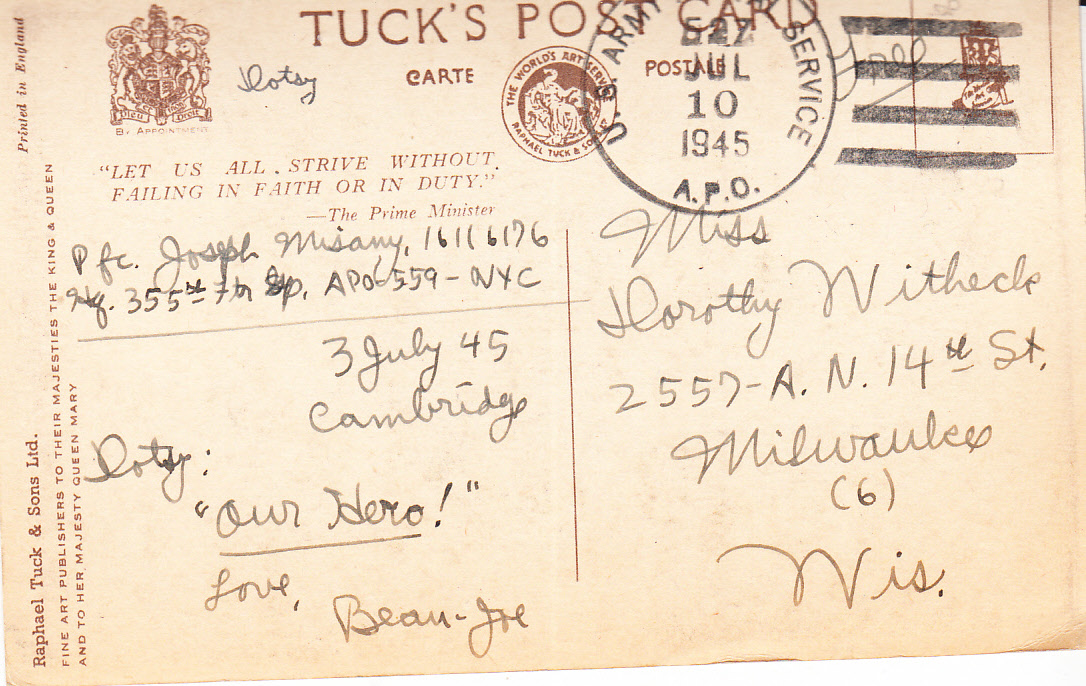 TUCK'S POST CARD
CARTE POSTALE
Printed in England
Dotsy
DIEU ET MON DROIT
BY APPOINTMENT
THE WORLD'S ART SERVICE
RAPHAEL TUCK & SONS
U.S. ARMY SERVICE
527
JUL
10
1945
A.P.O.
Free
"LET US ALL STRIVE WITHOUT
FAILING IN FAITH OR IN DUTY."
—The Prime Minister
Pfc. Joseph Misany, 16116176
Hq. 355st Ftr Gp. APO-559-NYC
3 July 45
Cambridge
Dotsy:
"Our Hero!"
Love,
Beau-Joe
Miss
Dorothy Witheck
2557-A. N. 14th St.
Milwaukee
(6)
Wis.
Raphael Tuck & Sons Ltd.
FINE ART PUBLISHERS TO THEIR MAJESTIES THE KING & QUEEN
AND TO HER MAJESTY QUEEN MARY